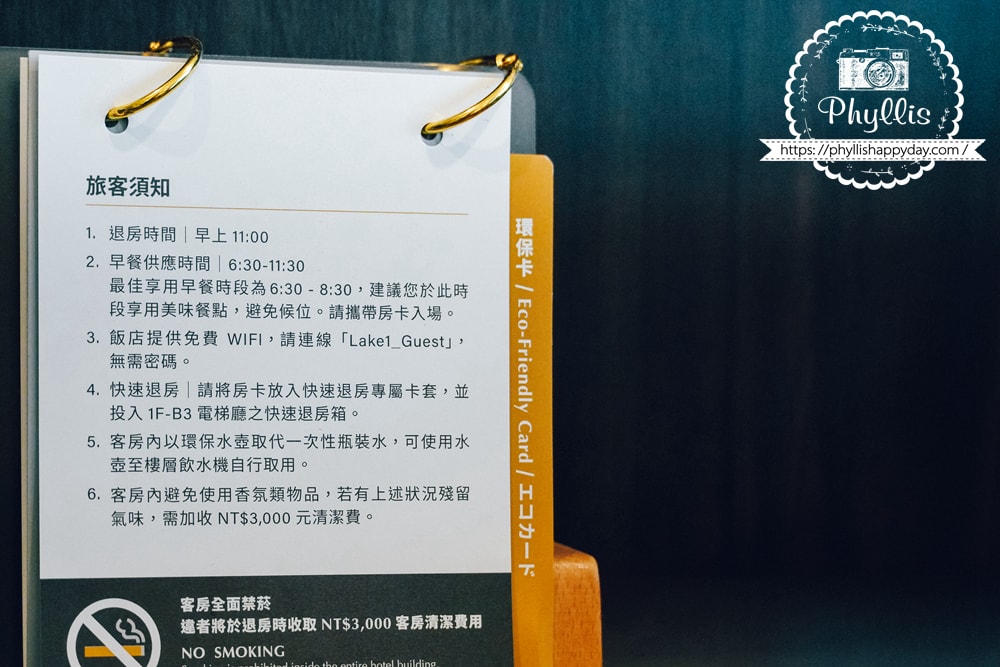 旅客須知
1. 退房時間｜早上 11:00
2. 早餐供應時間｜6:30-11:30
最佳享用早餐時段為 6:30 - 8:30，建議您於此時
段享用美味餐點，避免候位。請攜帶房卡入場。
3. 飯店提供免費 WIFI，請連線「Lake1_Guest」，
無需密碼。
4. 快速退房｜請將房卡放入快速退房專屬卡套，並
投入 1F-B3 電梯廳之快速退房箱。
5. 客房內以環保水壺取代一次性瓶裝水，可使用水
壺至樓層飲水機自行取用。
6. 客房內避免使用香氛類物品，若有上述狀況殘留
氣味，需加收 NT$3,000 元清潔費。
客房全面禁菸
違者將於退房時收取 NT$3,000 客房清潔費用
NO SMOKING
Smoking is prohibited inside the entire hotel building.
環保卡 / Eco-Friendly Card / エコカード
Phyllis
https://phyllishappyday.com /